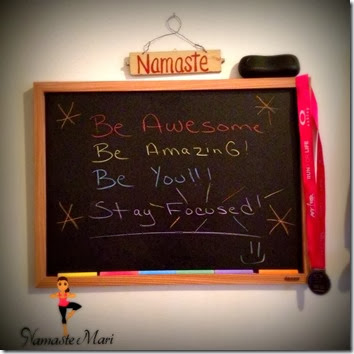 Namaste
Be Awesome!
Be Amazing!
Be You!!!
Stay Focused!
RUN LIFE
Namaste Mari